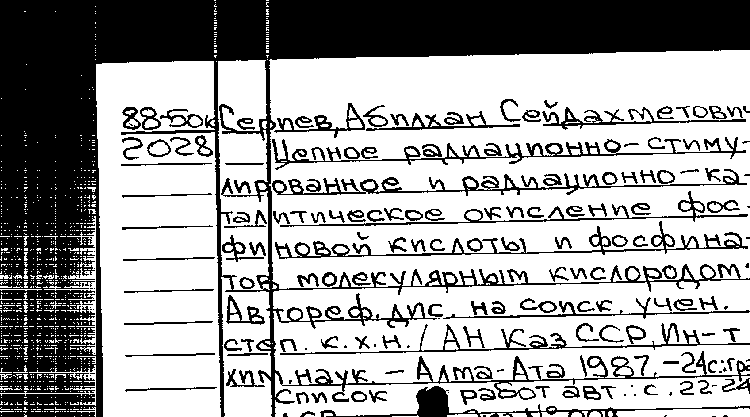 88-50к Серпев, Абплхан Сейдахметович
2028 Цепное радиационно-стиму-
лированное и радиационно-ка-
талитическое окисление фос-
финовой кислоты и фосфина-
тов молекулярным кислородом:
Автореф. дис. на соиск. учен.
степ. к.х.н. / АН КазССР, Ин-т
хим. наук. - Алма-Ата, 1987. - 24с.: гра
Список работ авт.: с. 22-24